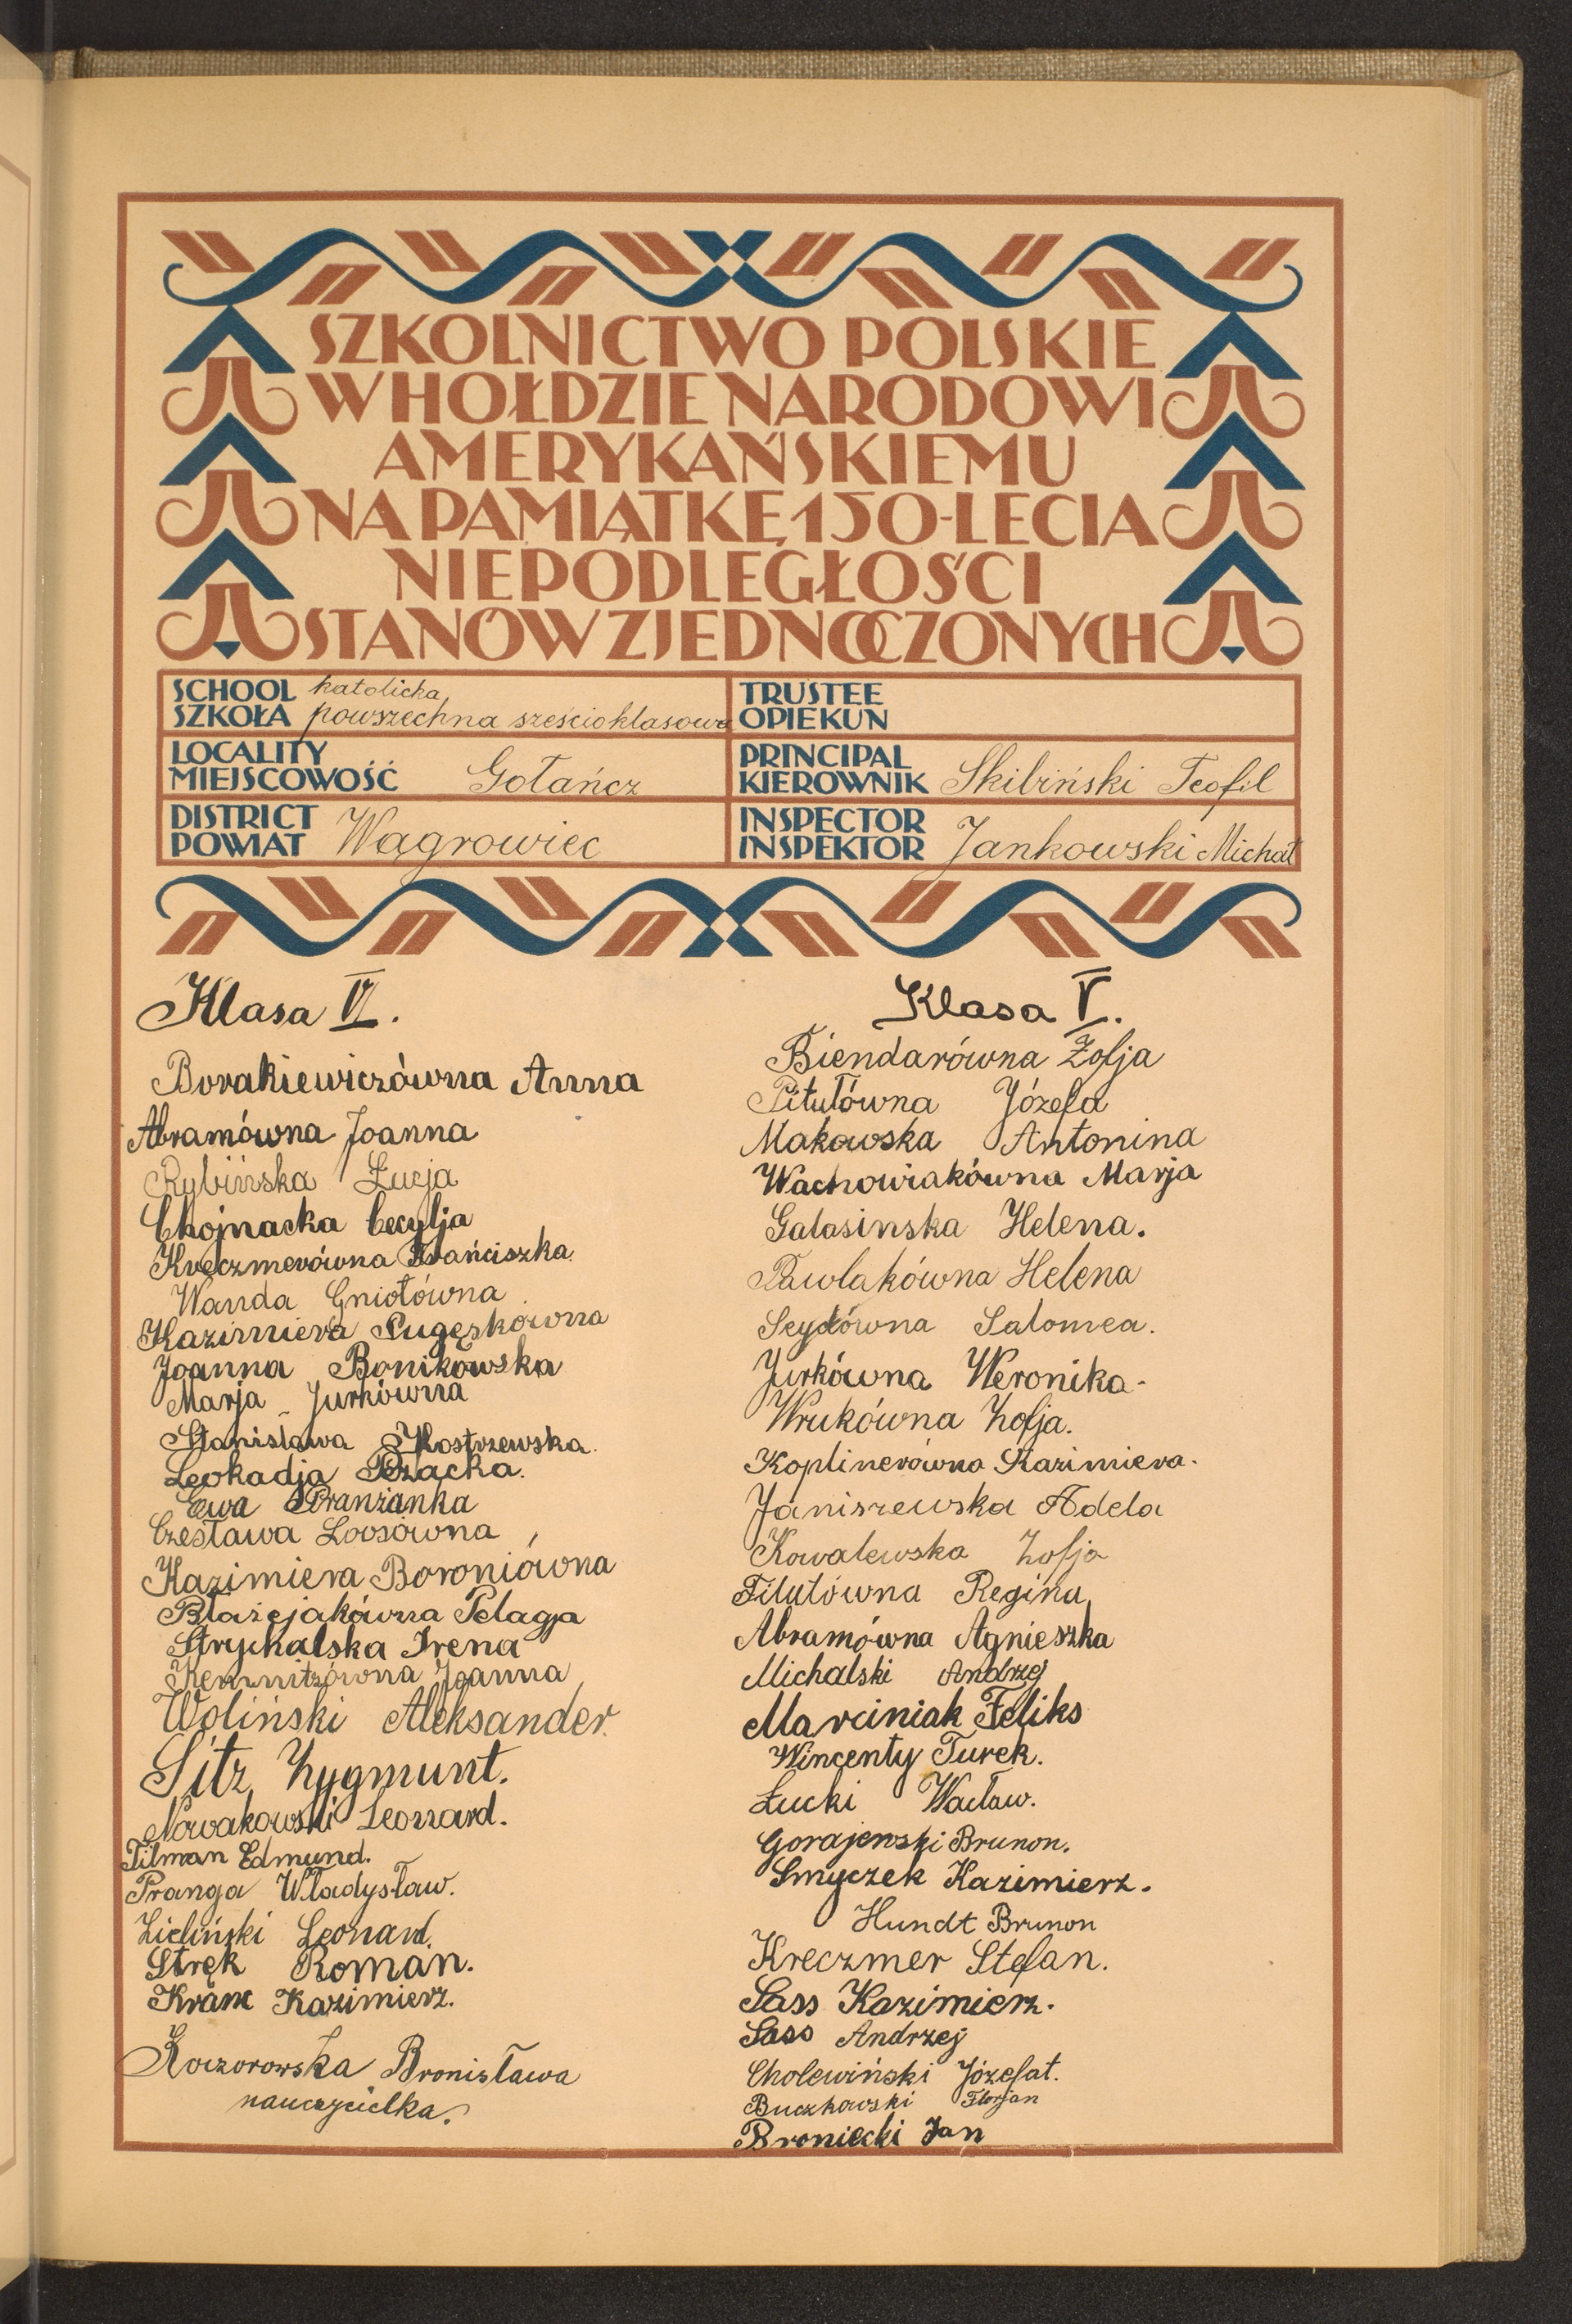 SZKOLNICTWO POLSKIE
W HOŁDZIE NARODOWI
AMERYKAŃSKIEMU
NA PAMIĄTKĘ 150-LECIA
NIEPODLEGŁOŚCI
STANÓW ZJEDNOCZONYCH
SCHOOL
SZKOŁA
katolicka
powszechna sześcioklasowa
TRUSTEE
OPIEKUN
LOCALITY
MIEJSCOWOŚĆ
Gołańcz
PRINCIPAL
KIEROWNIK
Skibiński Teofil
DISTRICT
POWIAT
Wągrowiec
INSPECTOR
INSPEKTOR
Jankowski Michał
Klasa VI.
Borakiewiczówna Anna
Abramówna Joanna
Rybińska Łucja
Chojnacka Cecylja
Kreczmerówna Frańciszka
Wanda Gniotówna
Kazimiera
Joanna Bonikowska
Marja Jurkówna
Stanisława Kostrzewska.
Leokadja
Ewa Pranżanka
Czesława Loosówna
Kazimiera Boroniówna
Błażejakówna Pelagja
Strychalska Irena
Kemnitzówna Joanna
Woliński Aleksander.
Sitz Zygmunt.
Nowakowski Leonard.
Tilman Edmund.
Pranga Władysław.
Zieliński Leonard.
Stręk Roman.
Kranc Kazimierz.
Koczorowska Bronisława
nauczycielka.
Klasa V.
Biendarówna Zofja
Pitutówna Józefa
Makowska Antonina
Wachowiakówna Marja
Galasinska Helena.
Pawlakówna Helena
Seydówna Salomea.
Jurkówna Weronika.
Wrukówna Zofja.
Koplinerówna Kazimiera.
Janiszewska Adela
Kowalewska Zofja
Filutówna Regina
Abramówna Agnieszka
Michalski Andrzej
Marciniak Feliks
Wincenty Turek.
Łucki Wacław.
Gorajewski Brunon.
Smyczek Kazimierz.
Hundt Brunon
Kreczmer Stefan.
Sass Kazimierz.
Sass Andrzej
Cholewiński Józefat.
Buczkowski Florjan
Broniecki Jan